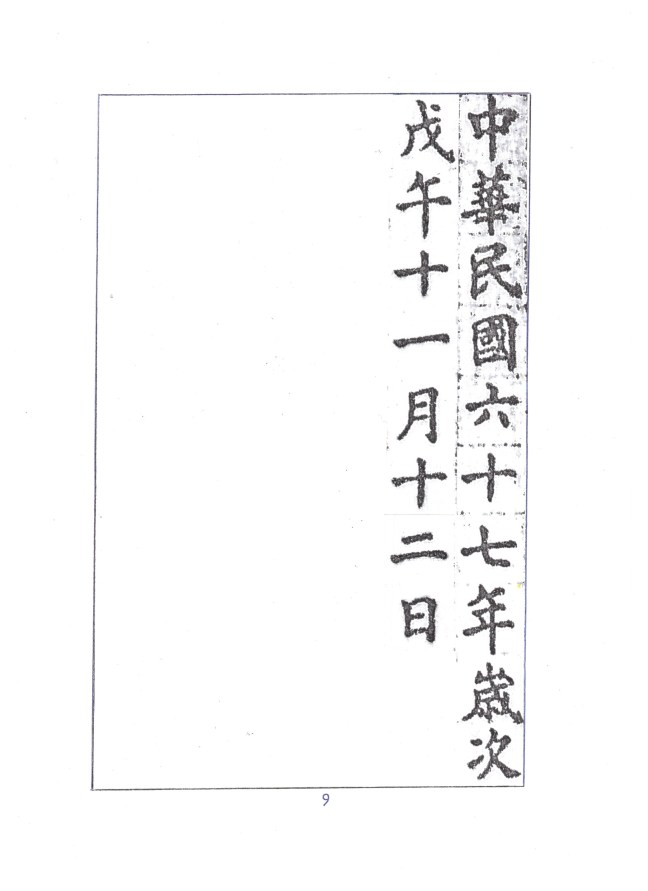 中華民國六十七年歲次
戊午十一月十二日
9